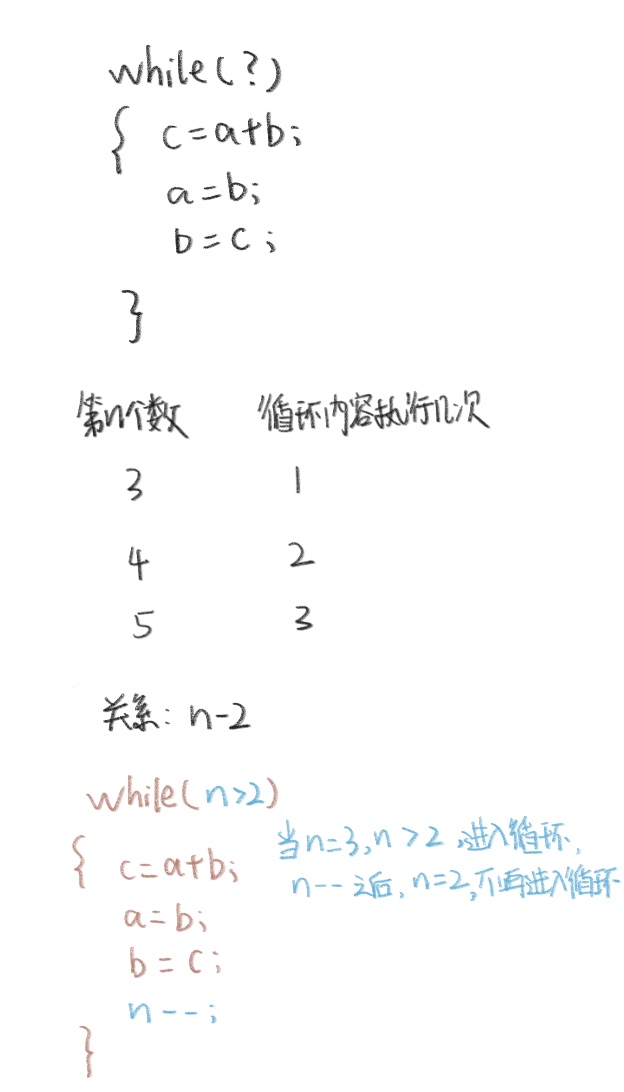 while(?)
{ c=a+b;
a=b;
b=c;
}
第n个数 循环内容执行几次
3 1
4 2
5 3
关系: n-2
while(n>2)
{ c=a+b;
当n=3,n>2,进入循环,
n--之后,n=2,不再进入循环
a=b;
b=c;
n--;
}